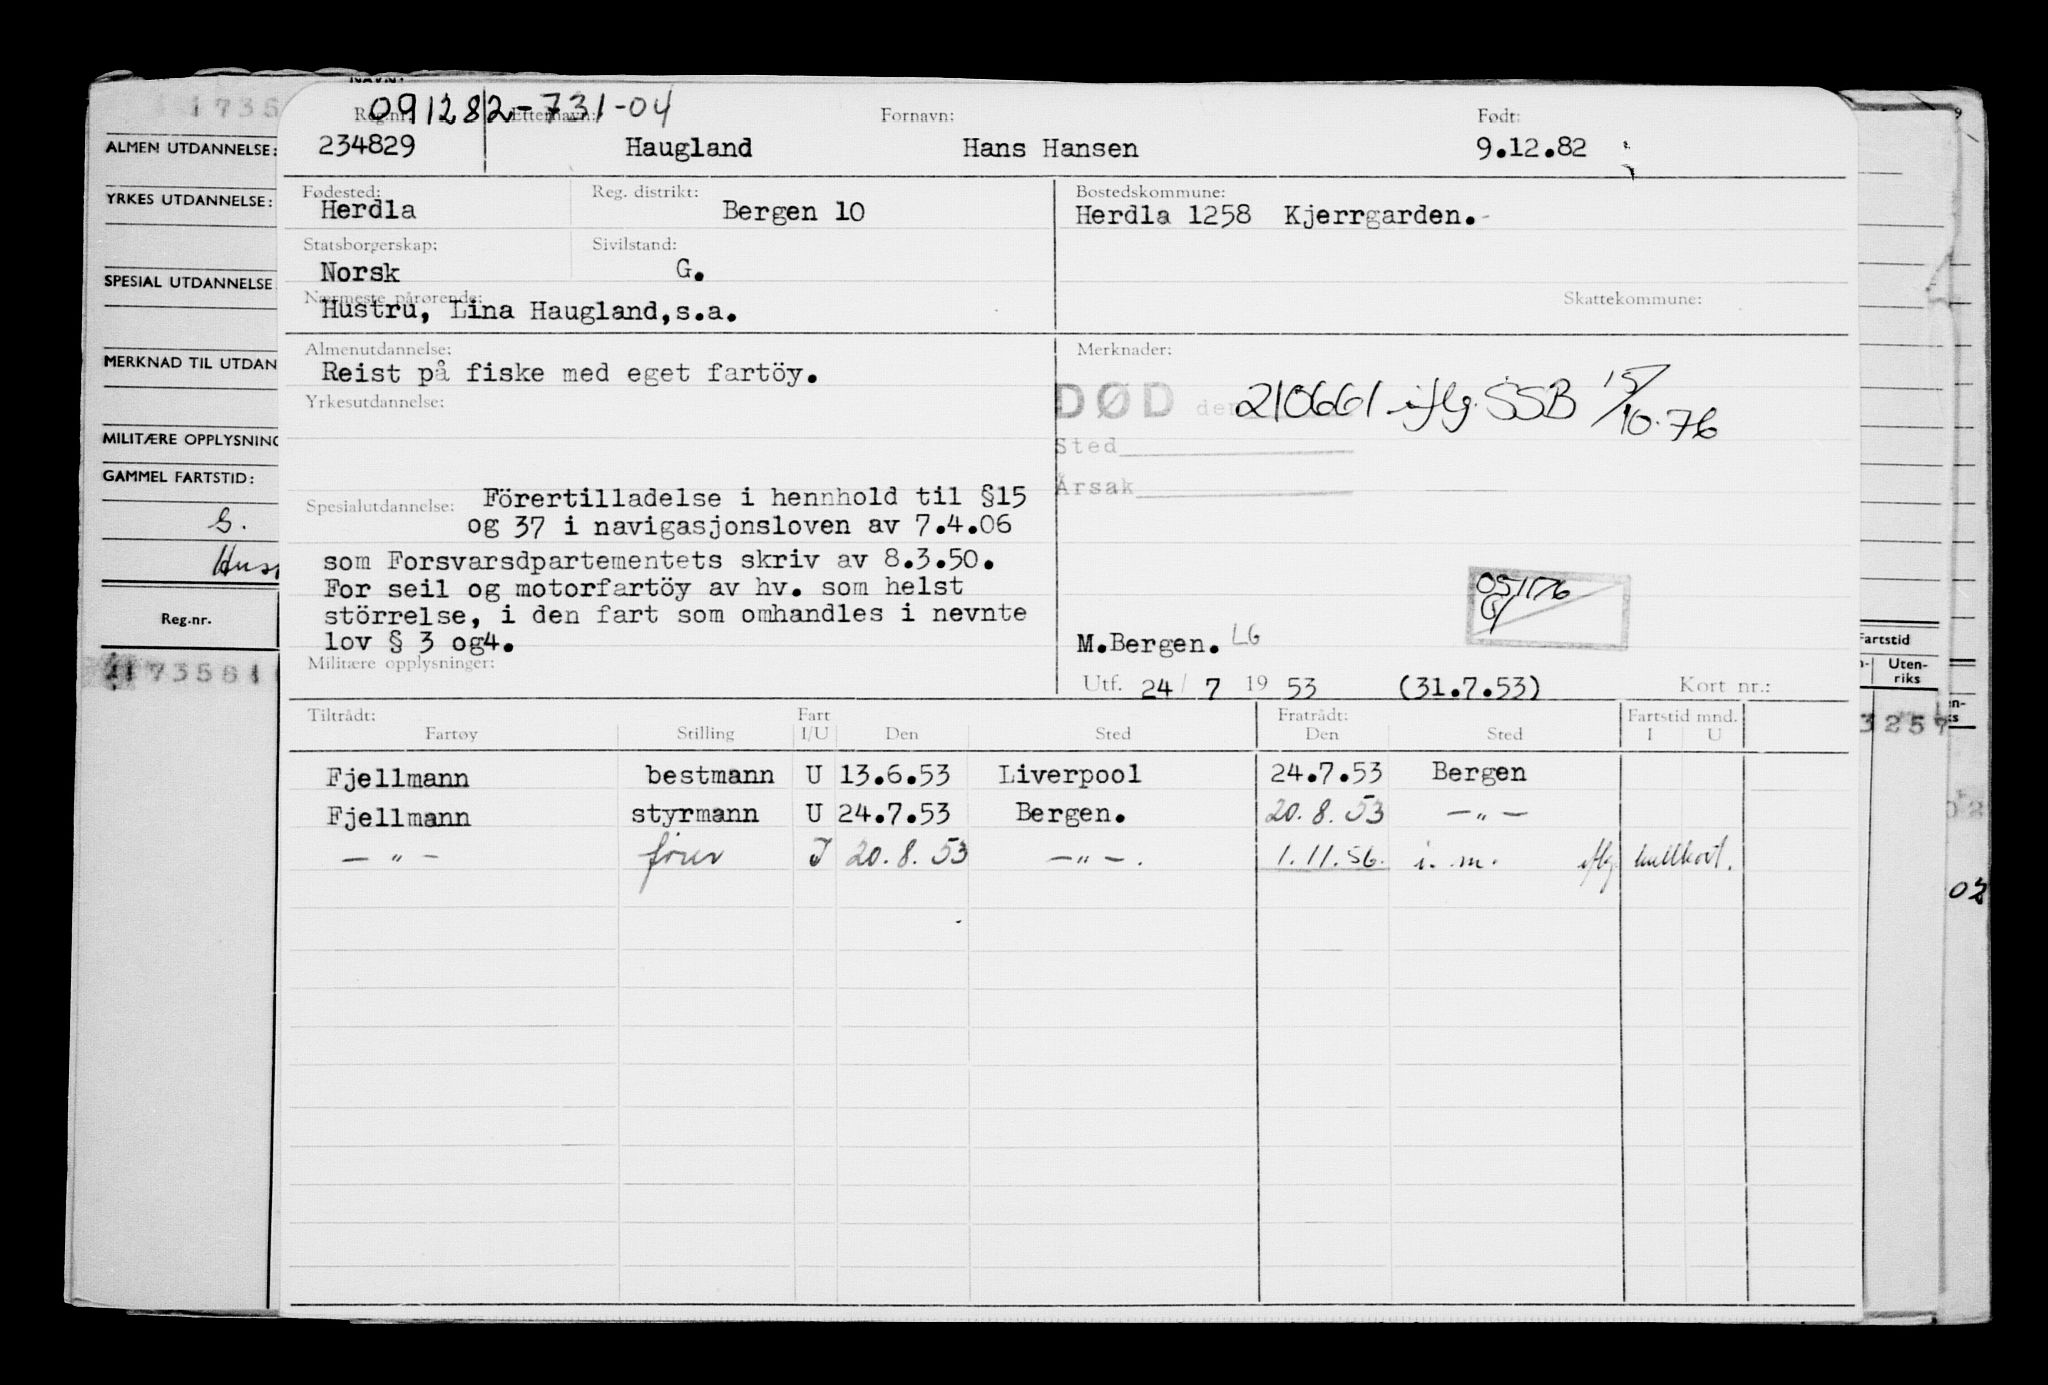 NAVN:
091282-731-04
Reg.nr. Etternavn: Fornavn: Født:
234829 Haugland Hans Hansen 9.12.82
Fødested: Reg. distrikt: Bostedskommune:
Herdla Bergen 10 Herdla 1258 Kjerrgarden.-
Statsborgerskap: Sivilstand:
Norsk G.
Nærmeste pårørende: Skattekommune:
Hustru, Lina Haugland,s.a.
Almenutdannelse: Merknader:
Reist på fiske med eget fartöy.
Yrkesutdannelse:
DØD den 210661 iflg. SSB 15/10.76
Sted
Årsak
Spesialutdannelse: Förertilladelse i hennhold til §15
og 37 i navigasjonsloven av 7.4.06
som Forsvarsdpartementets skriv av 8.3.50.
For seil og motorfartöy av hv. som helst
störrelse, i den fart som omhandles i nevnte
lov § 3 og4.
051176
M.Bergen. LG
Militære opplysninger:
Utf. 24/ 7 19 53 (31.7.53) Kort nr.:
Tiltrådt: Fart Fratrådt: Fartstid mnd.
Fartøy Stilling I/U Den Sted Den Sted I U
Fjellmann bestmann U 13.6.53 Liverpool 24.7.53 Bergen
Fjellmann styrmann U 24.7.53 Bergen. 20.8.53 — " —
— " — fører I 20.8.53 — " — . 1.11.56. i.m. iflg. hullkort.
1735
ALMEN UTDANNELSE:
YRKES UTDANNELSE:
SPESIAL UTDANNELSE
MERKNAD TIL UTDAN
MILITÆRE OPPLYSNING
GAMMEL FARTSTID:
G.
Hus
Reg.nr.
Fartstid
Uten-
riks
3257
02